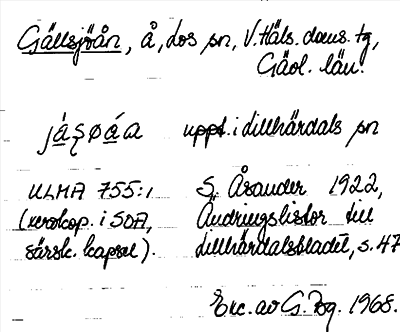 Gällsjöån, å, dos sn, V. Häls. doms. tg,
Gävl. län.
uppt. i Lillhärdals sn
ULMA 755:1 S. Åsander 1922,
(xerokop. i SOA, Ändringslistor till
särsk. kapsel). Lillhärdalsbladet, s. 47
Exc. av G. Bg. 1968.